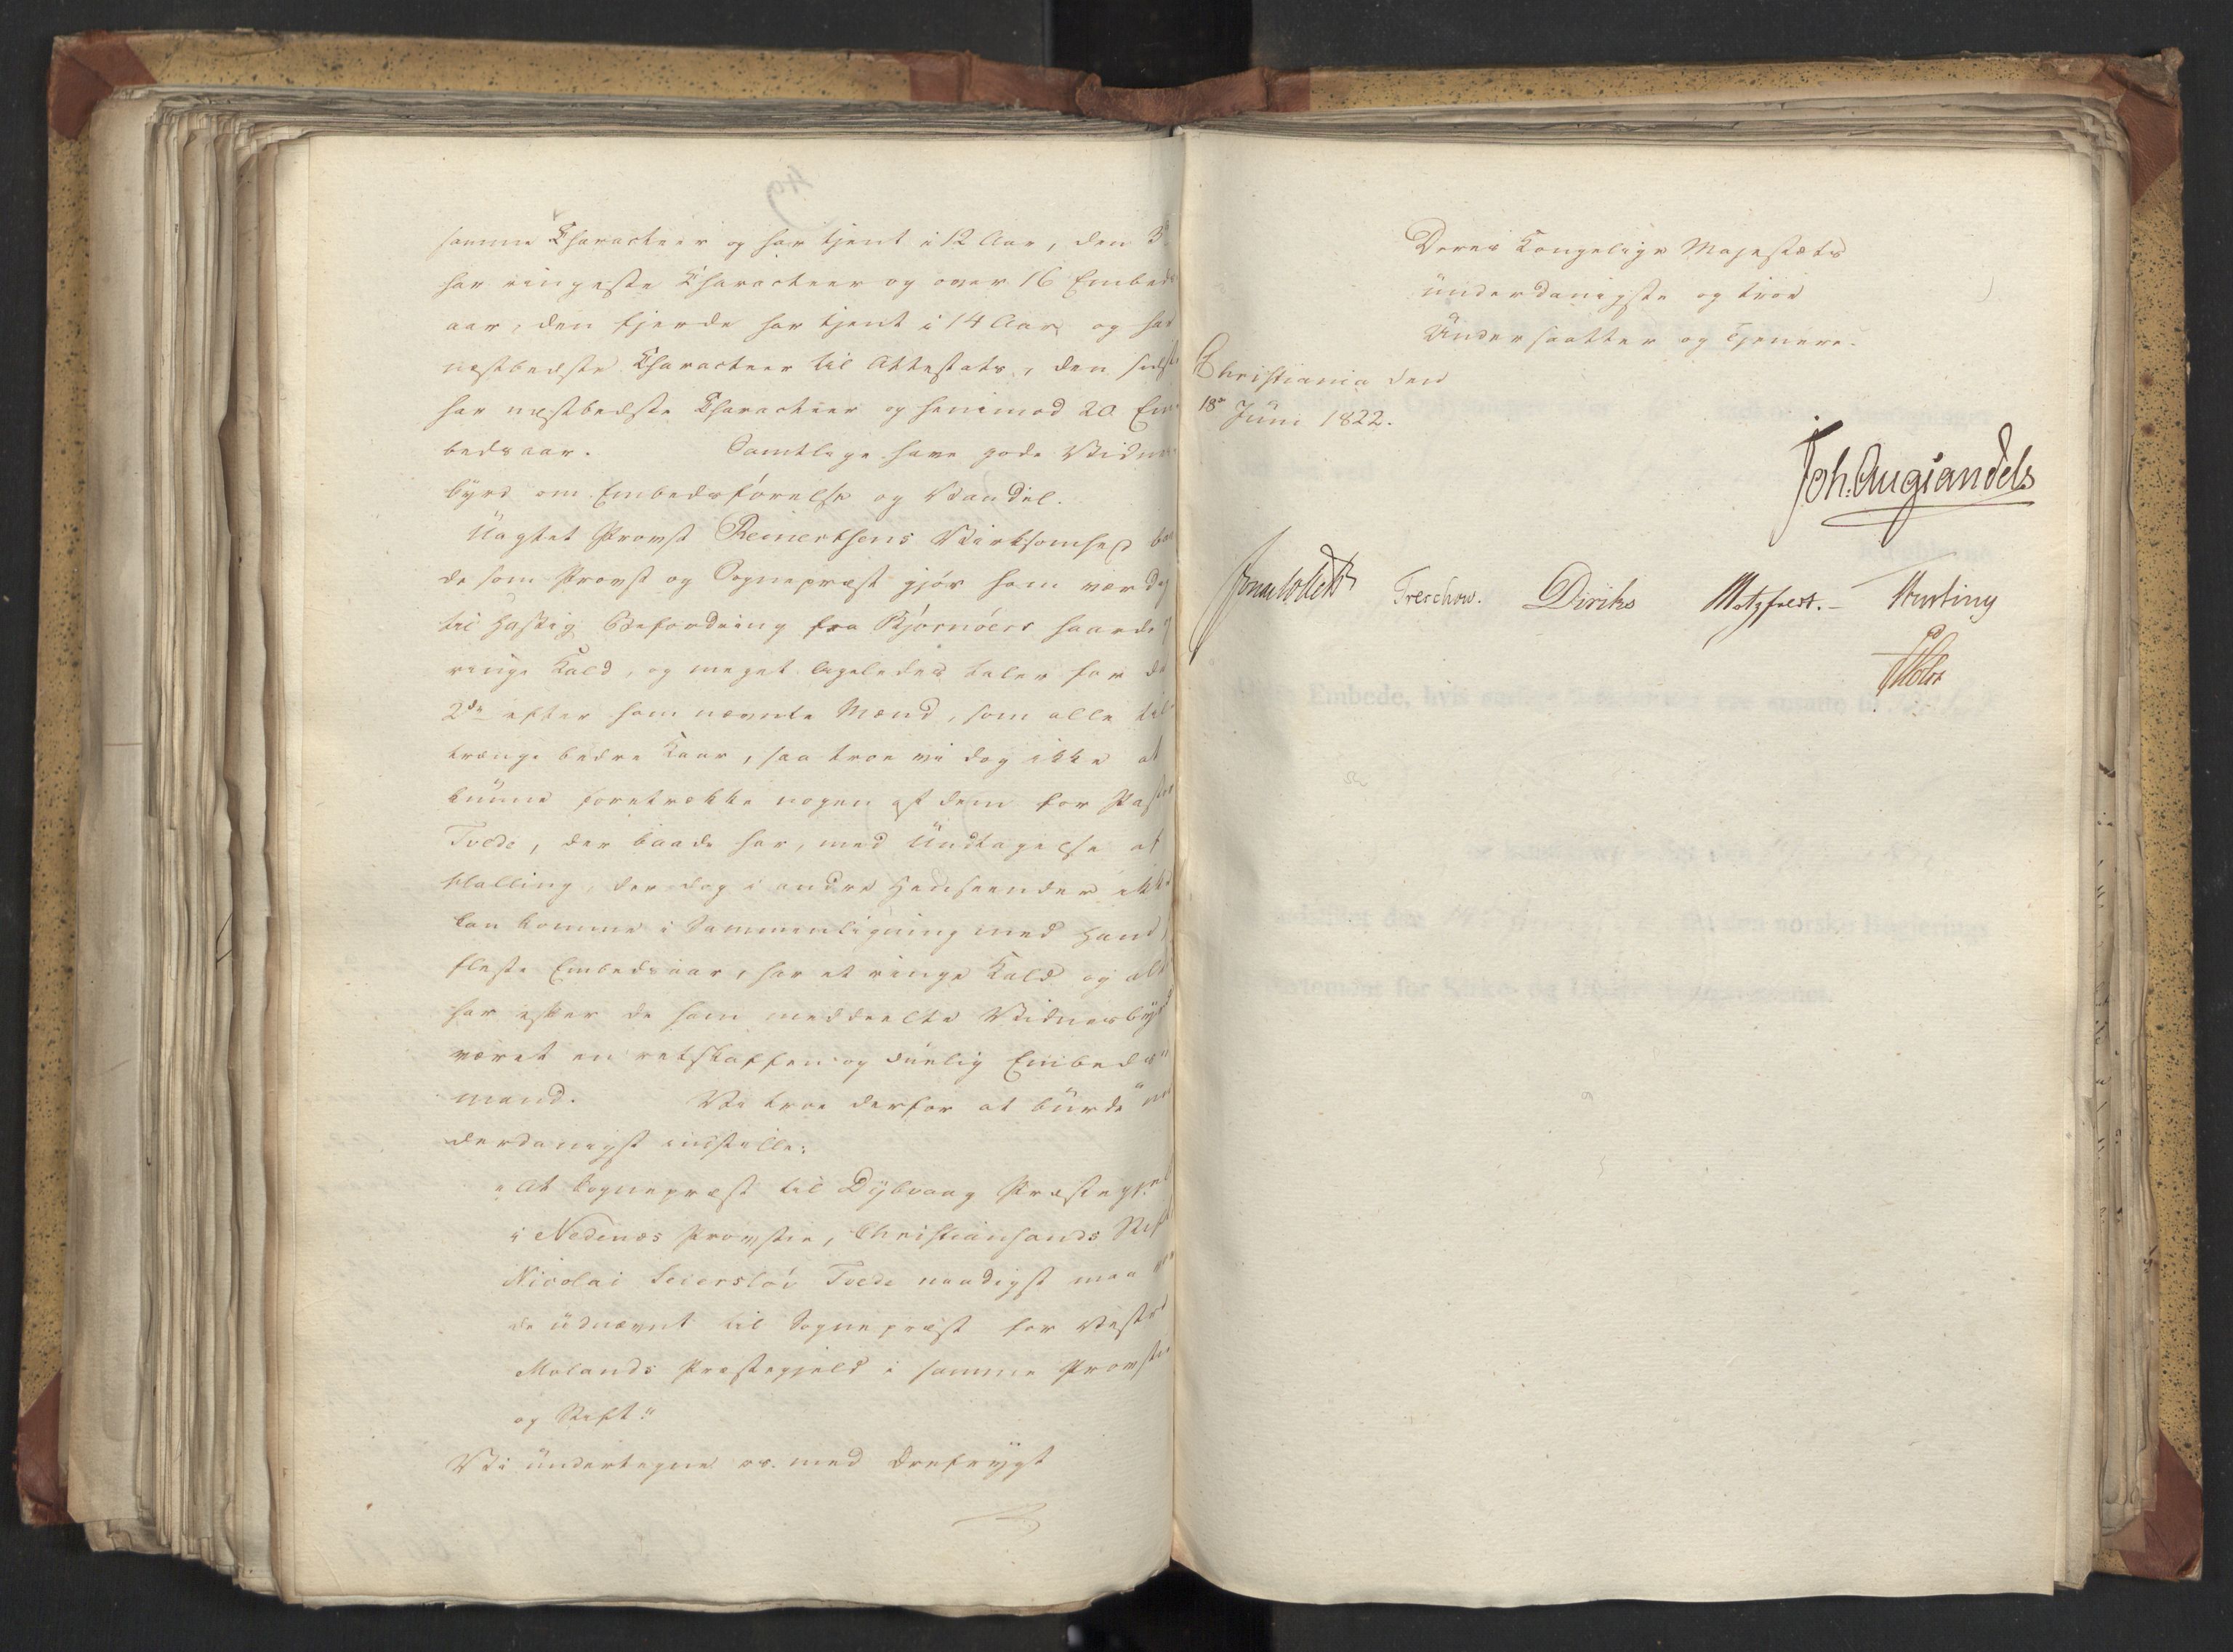 samme Characteer og har tjent i 12 Aar, den 3die
har ringeste Characteer og over 16 Embeds
aar, den fjerde har tjent i 14 Aar og har
næstbedste Characteer til Attestats, den sidste
har næstbedste Characteer og henimod 20 Em
bedsaar. Samtlige have gode Vidnes
byrd om Embedsførelse og Vandel.
Uagtet Provst Reinertsens Virksomhed baa
de som Provst og Sognepræst gjør ham værdig
til hastig Befordring fra Bjørnøers haarde og
ringe Kald, og meget ligeledes taler for de
2de efter ham nævnte Mænd, som alle til
trænge bedre Kaar, saa troe vi dog ikke at
kunne foretrække nogen af dem for Pastor
Tvede, der baade har, med Undtagelse af
Halling, der dog i andre Henseender ikke
kan komme i Sammenligning med ham,
fleste Embedsaar, har et ringe Kald og altid
har efter de ham meddeelte Vidnesbyrd
været en retskaffen og duelig Embeds
mand. Vi troe derfor at burde un
derdanigst indstille:
"At Sognepræst til Dybvaag Præstegjeld
i Nedenæs Provstie, Christiansands Stift
Nicolai Seiersløv Tvede naadigst maa vor
de udnævnt til Sognepræst for Vestre
Molands Præstegjeld i samme Provstie
og Stift."
Vi undertegne os med Ærefrygt
Deres Kongelige Majestæts
underdanigste og troe
Undersaatter og Tjenere.
Christiania den
18de Juni 1822.
Joh. Aug. Sandels
Jonas Collett Treschow. Diriks Motzfeldt. Krefting
Holst